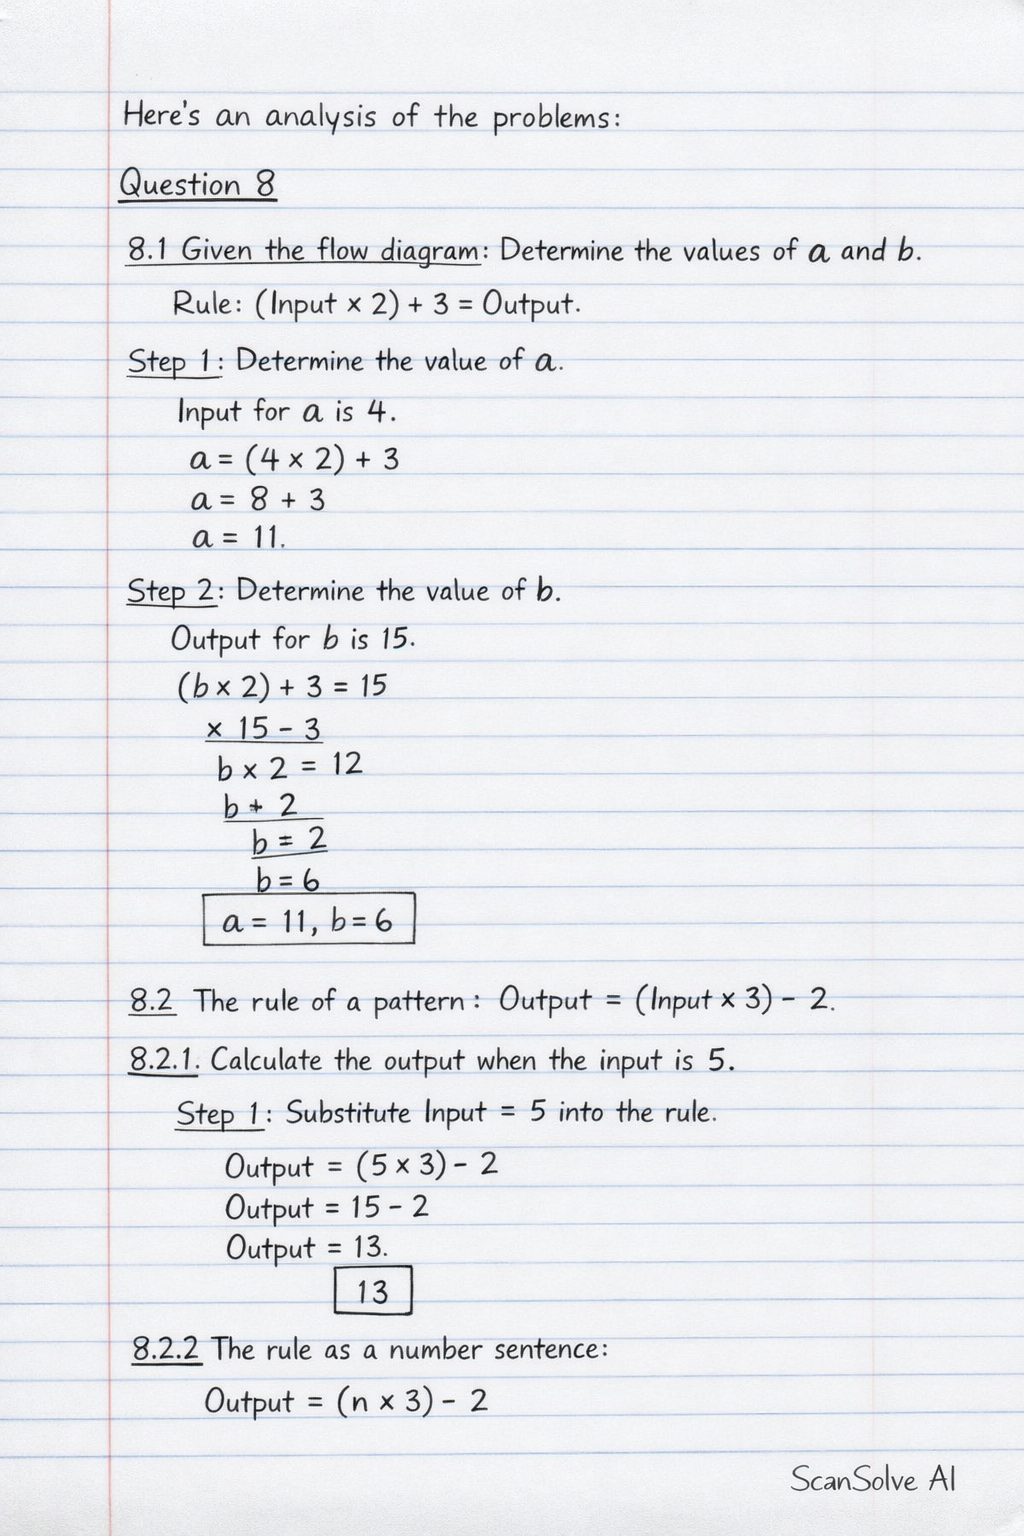 Here's an analysis of the problems:
Question 8
8.1 Given the flow diagram: Determine the values of a and b.
Rule: (Input × 2) + 3 = Output.
Step 1: Determine the value of a.
Input for a is 4.
a = (4 × 2) + 3
a = 8 + 3
a = 11.
Step 2: Determine the value of b.
Output for b is 15.
(b × 2) + 3 = 15
× 15 - 3
b × 2 = 12
b + 2
b = 2
b = 6
a = 11, b = 6
8.2 The rule of a pattern: Output = (Input × 3) - 2.
8.2.1. Calculate the output when the input is 5.
Step 1: Substitute Input = 5 into the rule.
Output = (5 × 3) - 2
Output = 15 - 2
Output = 13.
13
8.2.2 The rule as a number sentence:
Output = (n × 3) - 2
ScanSolve AI